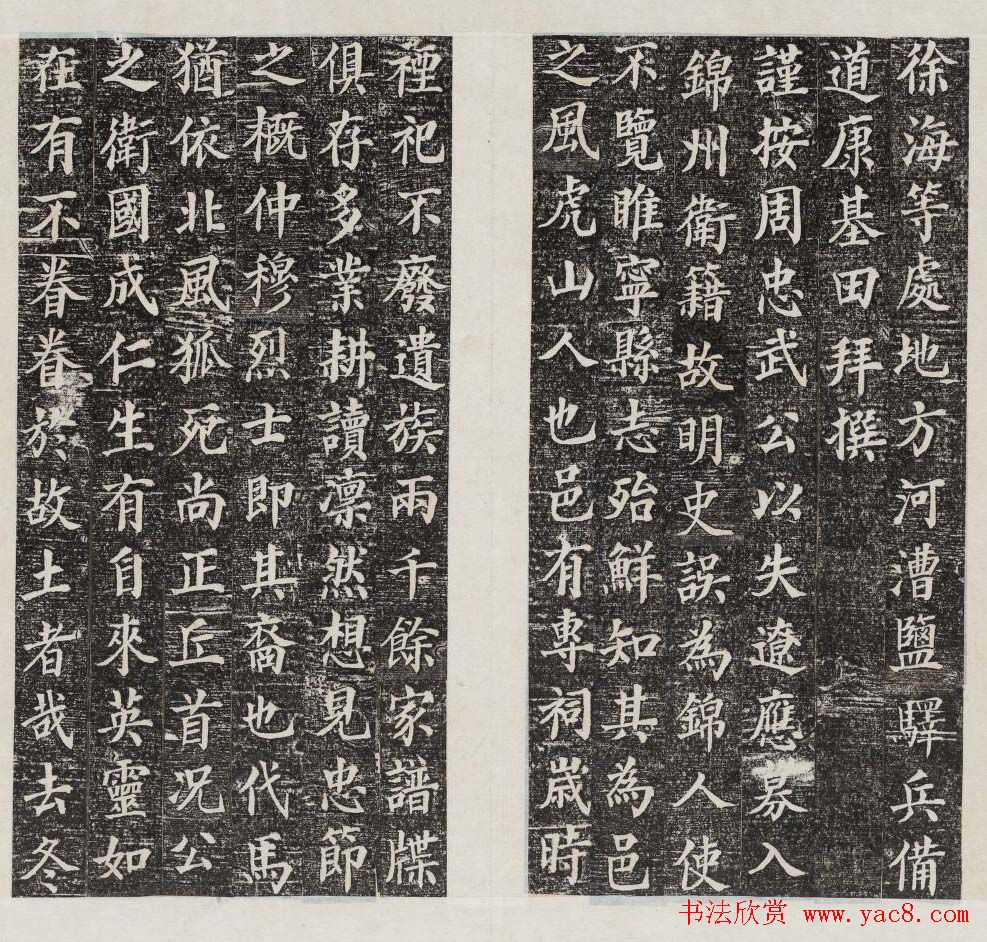 徐海等處地方河漕鹽驛兵備
道康基田拜撰
謹按周忠武公以失遼應募入
錦州衛籍故明史誤為錦人使
不覽睢寧縣志殆鮮知其為邑
之風虎山人也邑有專祠嵗時
禋祀不廢遺族兩千餘家譜牒
俱存多業耕讀凛然想見忠節
之概仲穆烈士即其裔也代馬
猶依北風狐死尚正丘首况公
之衛國成仁生有自來英靈如
在有不眷眷於故土者哉去冬
书法欣赏 www.yac8.com